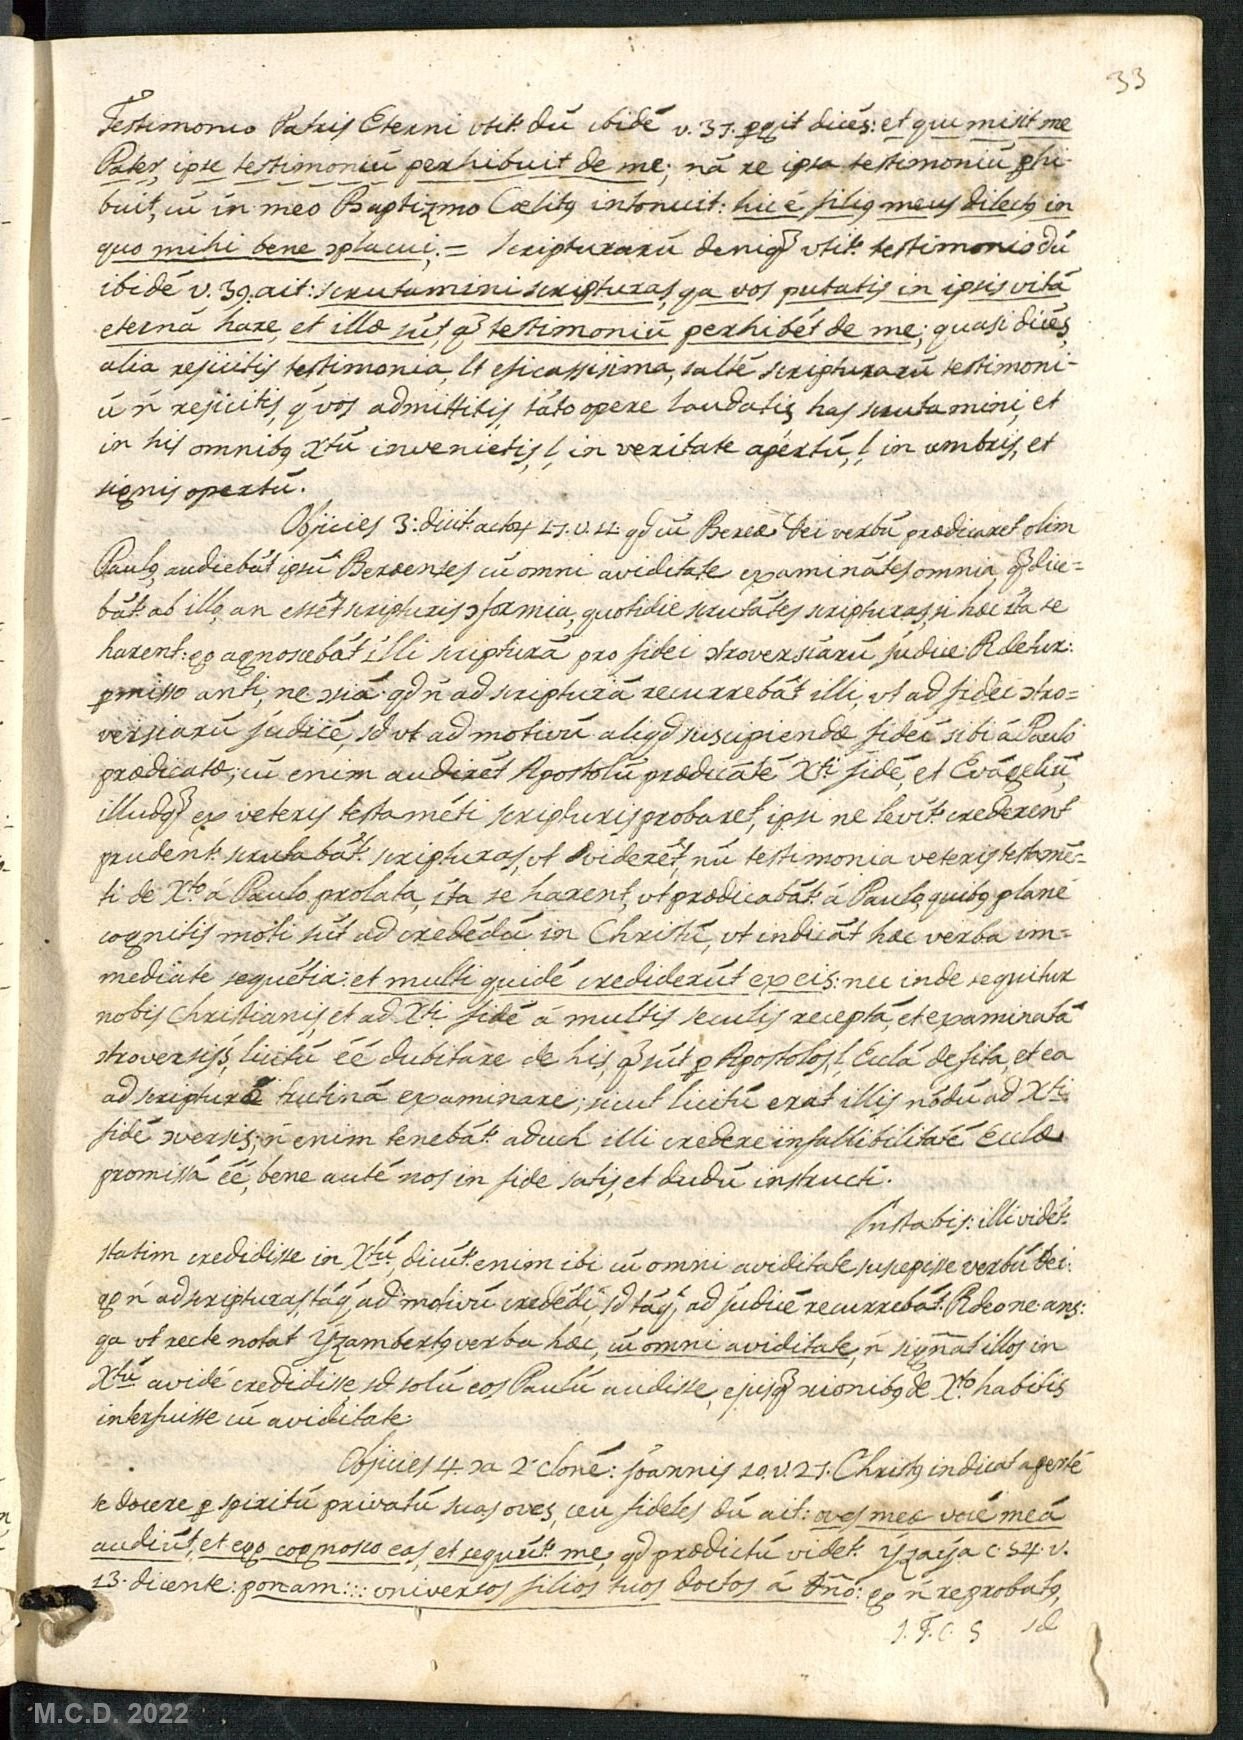 33
Testimonio Patris Eterni vtit.r dũ ibidẽ v. 37. ꝑgit dicẽs: et qui misit me
Pater, ipse testimoniũ perhibuit de me; nã re ipsa testimoniũ ꝑhi-
buit, cũ in meo Baptizmo Cœlitꝰ intonuit: hic ẽ filiꝰ meus dilectꝰ in
quo mihi bene ↄplacui. = Scripturarũ deniqꝫ vtit.r testimonio dũ
ibidẽ v. 39. ait: scrutamini scripturas, qa vos putatis in ipsis vitã
eternã hare, et illæ sũt, q̃ testimoniũ perhibẽt de me; quasi dicẽs,
alia rejicitis testimonia, lt eficassisima, saltẽ scripturarũ testimoni-
ũ ñ rejicitis, q̃ vos admittitis, tãto opere laudatis, has scrutamini, et
in his omnibꝰ Xtũ invenietis, l, in veritate apertũ, l, in umbris, et
signis opertũ.
Objicies 3.: dicit.r actoꝝ 17. v. 11. qd cũ Bereæ Dei verbũ prædicaret olim
Paulꝰ, audiebãt ipsũ Beroenses cũ omni aviditate examinãtes omnia q̃ dice-
bãt.r ab illo, an essẽt scripturis ↄformia, quotidie scrutãtes scripturas, si hæc ita se
harent: eg agnoscebãt illi scripturã pro fidei ↄtroversiarũ judice. Rdetur:
ꝑmisso anti, ne ↄsiã: qd ñ ad scripturã recurrebãt illi, vt ad fidei ↄtro=
versiarũ judicẽ, sd vt ad motivũ aliqd suscipiendæ fidei sibi á Paulo
prædicatæ; cũ enim audirẽt Apostolũ prædicãtẽ Xti fidẽ, et Evãgeliũ,
illudqꝫ ex veteris testamẽti scripturis probaret, ipsi ne levit.r crederent
prudent.r scrutabãt.r scripturas, vt viderẽt, nũ testimonia veteris testamẽ=
ti de Xto á Paulo prolata, ita se harent, vt prædicabãt.r á Paulo, quibꝰ planè
cognitis moti sũt ad credẽdũ in Christũ, vt indicãt hæc verba im=
mediate sequẽtia: et multi quidẽ crediderũt ex eis: nec inde sequitur
nobis Christianis, et ad Xti fidẽ á multis seculis receptã, et examinatã
ↄtroversis, licitũ ẽẽ dubitare de his, q̃ sũt ꝑ Apostolos, l, Ecclã defita, et ea
ad scripturæ trutinã examinare; sicut licitũ erat illis nõdũ ad Xti
fidẽ ↄversis; ñ enim tenebãt.r aduch illi credere infallibilitatẽ Ecclæ
promissã ẽẽ, bene autẽ nos in fide satis, et dudũ instructi.
Instabis: illi vidẽt.r
statim credidisse in Xtũ, dicũt.r enim ibi cũ omni aviditate suscepisse verbũ Dei:
eg ñ ad scripturas, tãq̃ ad motivũ credẽdi, sd tãq̃, ad judicẽ recurrebãt. Rdeo ne. ans:
qa vt recte notat Yzambertꝰ verba hæc, cũ omni aviditate, ñ signãt illos in
Xtũ avidé credidisse sd solũ eos Paulũ audisse, ejusqꝫ ↄcionibꝰ de Xto habitis
interfuisse cũ aviditate.
Objicies 4. ↄa 2 clonẽ: Joannis 10. v. 27. Christꝰ indicat apertè
se docere ꝑ spiritũ privatũ suas oves, ceu fideles dũ ait: oves meæ vocẽ meã
audiũt, et ego cognosco eas, et sequũt.r me, qd prædictũ videt.r Yzaÿa c. 54. v.
13. dicente: ponam ::: universos filios tuos doctos á Dño: eg ñ reprobatꝰ,
J. F. C. S sd
M.C.D. 2022